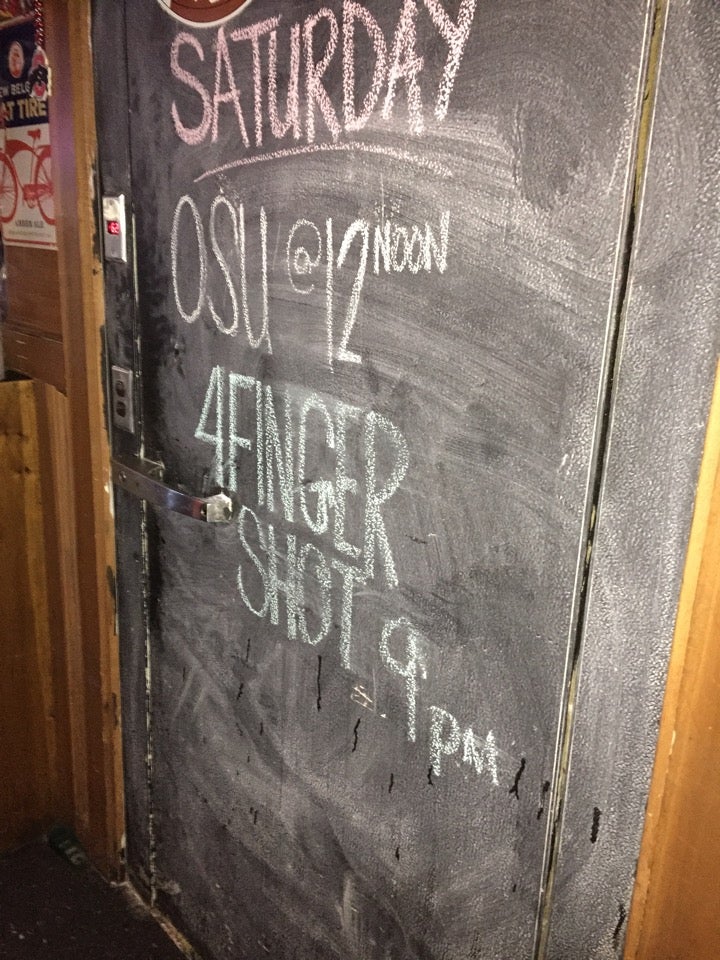 SATURDAY
OSU @ 12 NOON
4 FINGER
SHOT 9
PM
AT TIRE